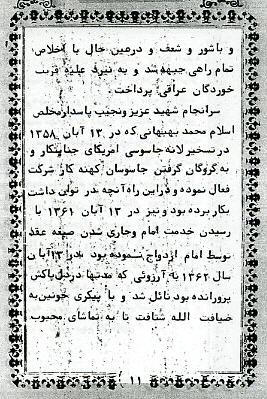 و باشور و شعف و درعین حال با اخلاص
تمام راهی جبهه شد و به نبرد علیه فریب
خوردگان عراقی پرداخت.
سرانجام شهید عزیز ونجیب پاسدار مخلص
اسلام محمد بهبهانی که در ۱۳ آبان ۱۳۵۸
در تسخیر لانه جاسوسی امریکای جنایتکار و
به گروگان گرفتن جاسوسان کهنه کار شرکت
فعال نموده و دراین راه آنچه در توان داشت
بکار برده بود و نیز در ۱۳ آبان ۱۳۶۱ با
رسیدن خدمت امام وجاری شدن صیغه عقد
توسط امام ازدواج نموده بود در ۱۳ آبان
سال ۱۳۶۲ به آرزوئی که مدتها در دل پاکش
پرورانده بود نائل شد و با پیکری خونین به
ضیافت الله شتافت تا به تماشای محبوب
۱۱